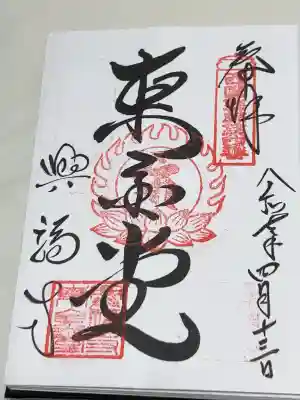 奉拝
令和 年四月十三日
東金堂
興福寺